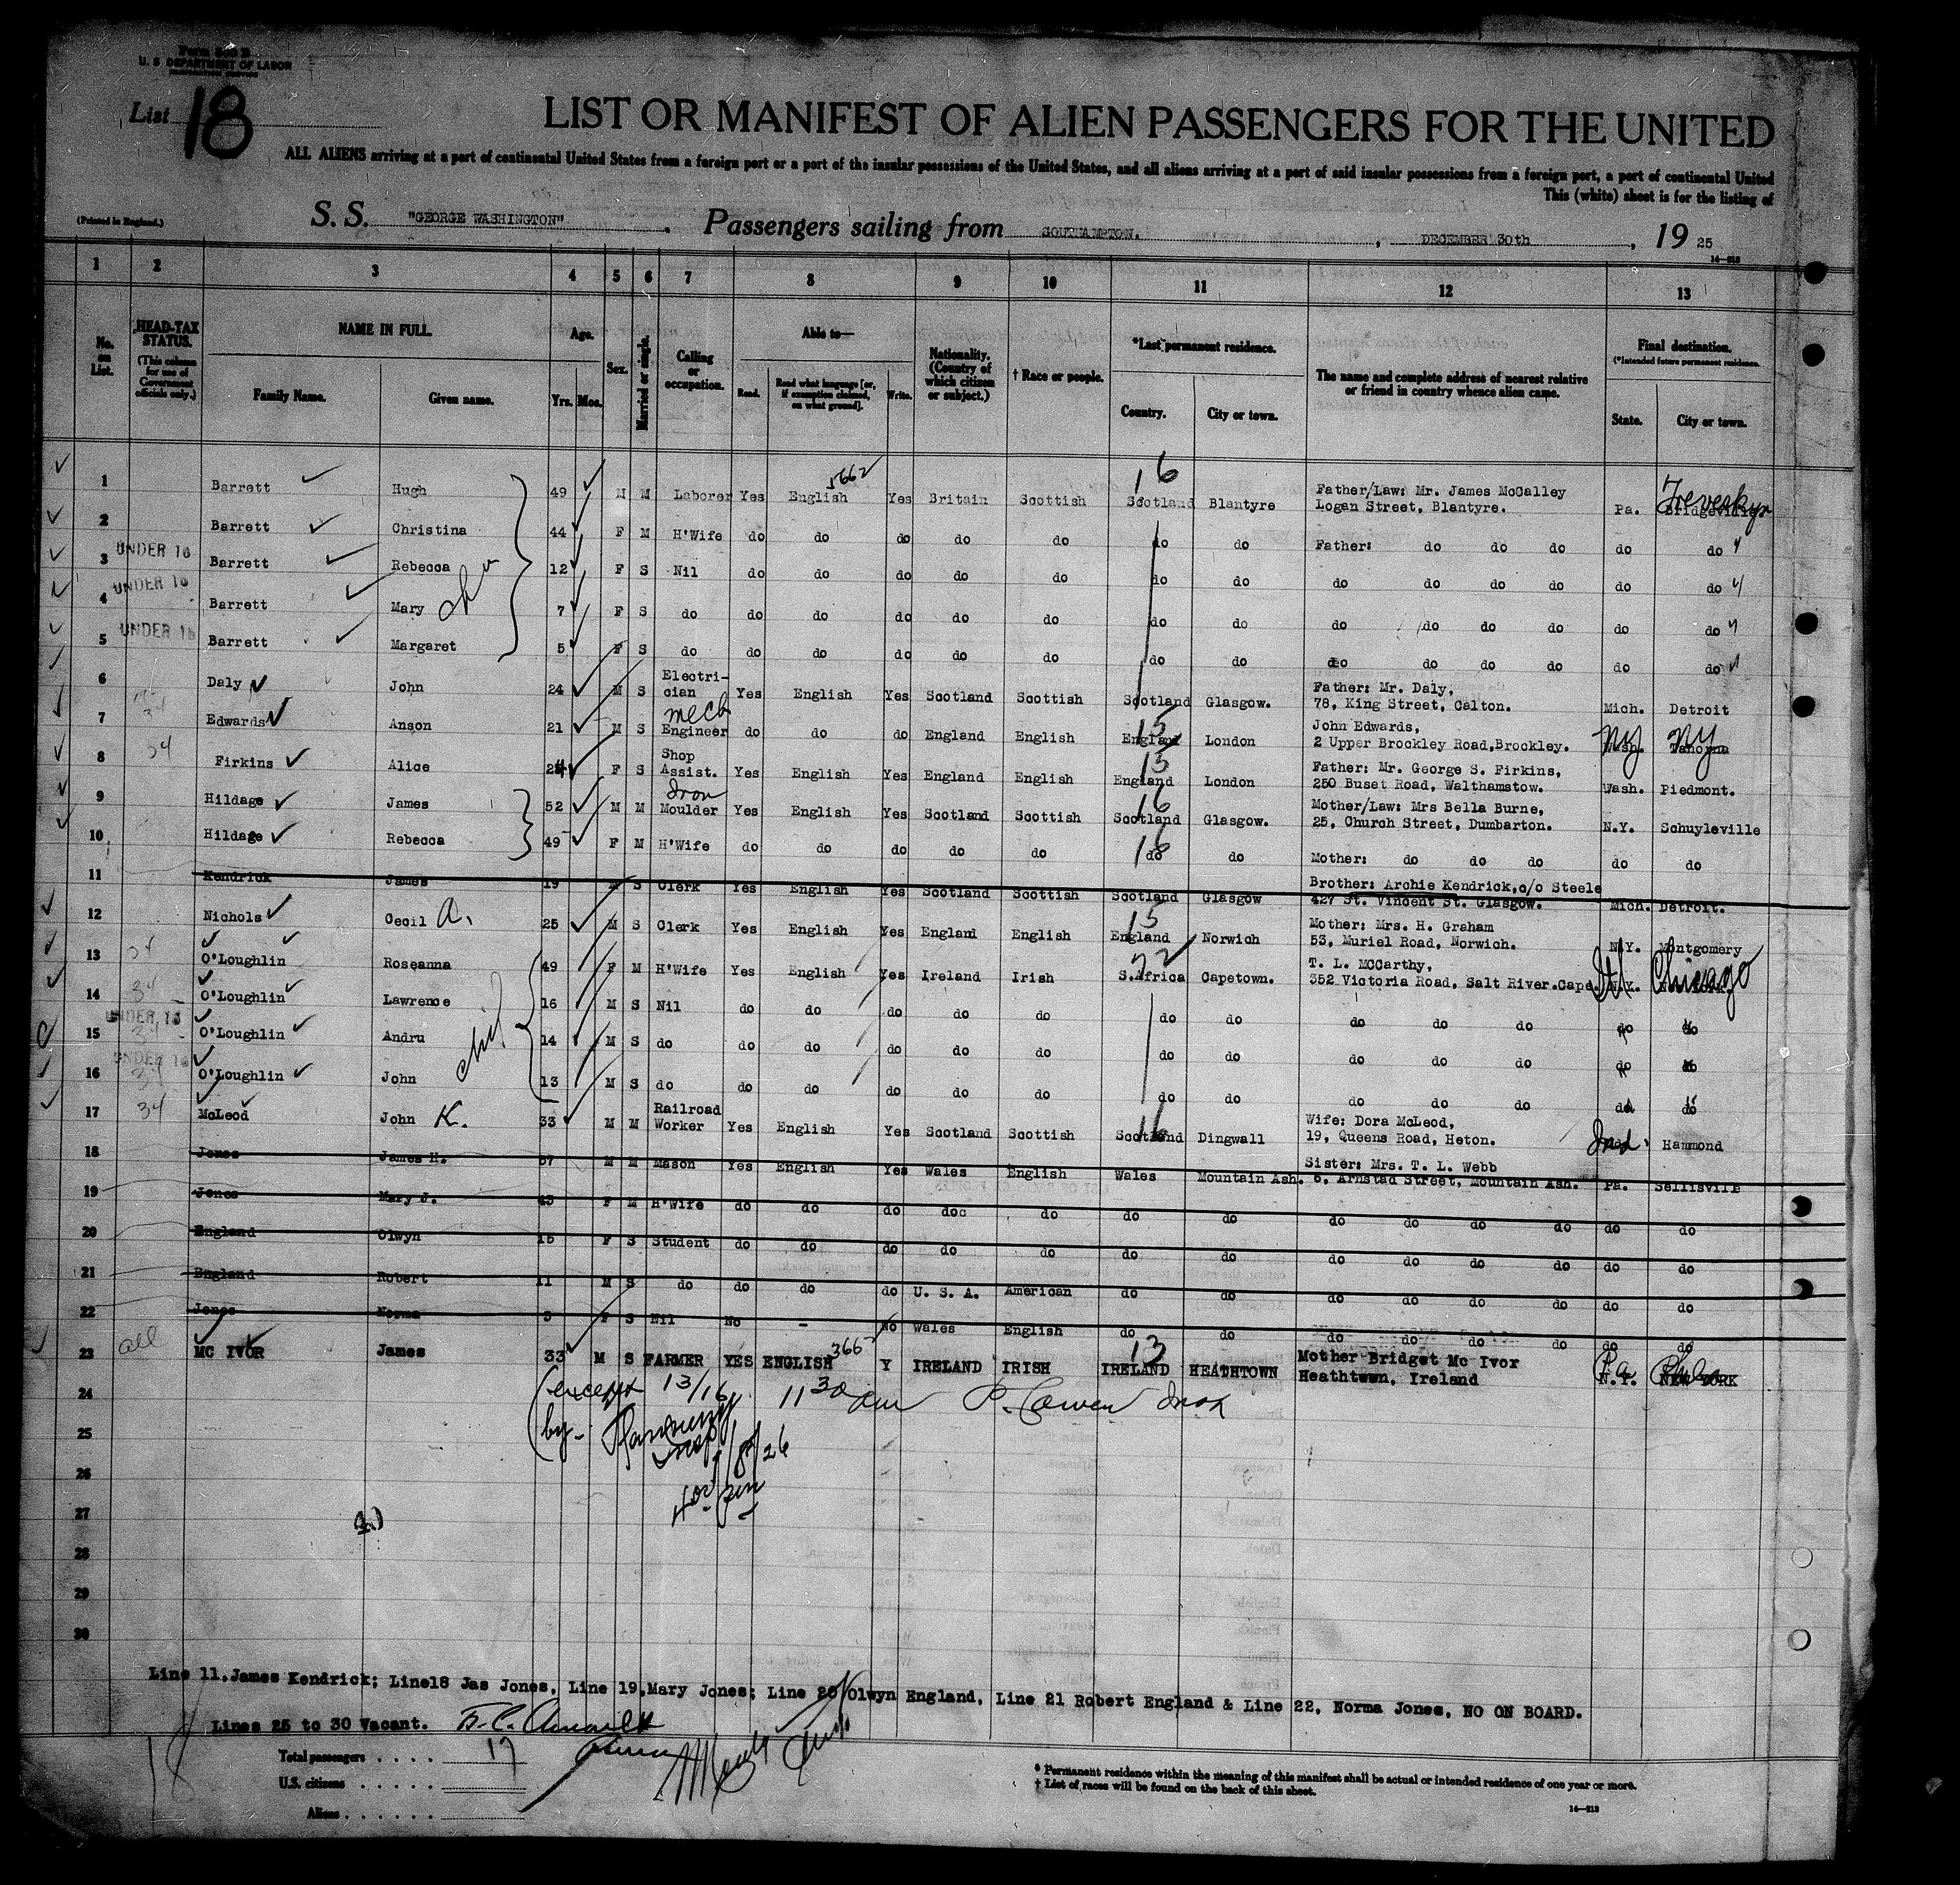 Form 500 B
U. S. DEPARTMENT OF LABOR
IMMIGRATION SERVICE
List 18
LIST OR MANIFEST OF ALIEN PASSENGERS FOR THE UNITED
ALL ALIENS arriving at a port of continental United States from a foreign port or a port of the insular possessions of the United States, and all aliens arriving at a port of said insular possessions from a foreign port, a port of continental United
This (white) sheet is for the listing of
(Printed in England.)
S. S. "GEORGE WASHINGTON". Passengers sailing from SOUTHAMPTON. , DECEMBER 30th , 19 25
14-218
1 2 3 4 5 6 7 8 9 10 11 12 13
No. on List.
HEAD-TAX STATUS. (This column for use of Government officials only.)
NAME IN FULL.
Family Name. Given name.
Age. Yrs. Mos.
Sex.
Married or single.
Calling or occupation.
Able to—
Read. Read what language [or, if exemption claimed, on what ground]. Write.
Nationality. (Country of which citizen or subject.)
† Race or people.
*Last permanent residence.
Country. City or town.
The name and complete address of nearest relative or friend in country whence alien came.
Final destination. (*Intended future permanent residence.
State. City or town.
5662 16
1 Barrett Hugh 49 M M Laborer Yes English Yes Britain Scottish Scotland Blantyre Father/Law: Mr. James McCalley Logan Street, Blantyre. Pa. Bridgeville
2 Barrett Christina 44 F M H'Wife do do do do do do do Father: do do do do do
3 UNDER 16 Barrett Rebecca 12 F S Nil do do do do do do do do do do do do do
4 UNDER 16 Barrett Mary 7 F S do do do do do do do do do do do do do do
5 UNDER 16 Barrett Margaret 5 F S do do do do do do do do do do do do do do
6 Daly John 24 M S Electri-cian Yes English Yes Scotland Scottish Scotland Glasgow. Father: Mr. Daly, 78, King Street, Calton. Mich. Detroit
7 34 Edwards Anson 21 M S mech Engineer do do do England English England 15 London John Edwards, 2 Upper Brockley Road,Brockley. Wash. Tahorma NY NY
8 34 Firkins Alice 24 F S Shop Assist. Yes English Yes England English England 15 London Father: Mr. George S. Firkins, 250 Buset Road, Walthamstow. Wash. Piedmont.
9 Hildage James 52 M M Iron Moulder Yes English Yes Scotland Scottish Scotland 16 Glasgow. Mother/Law: Mrs Bella Burne, 25, Church Street, Dumbarton. N.Y. Schuyleville
10 Hildage Rebecca 49 F M H'Wife do do do do do do 16 do Mother: do do do do do
11 Kendrick James 19 M S Clerk Yes English Yes Scotland Scottish Scotland Glasgow Brother: Archie Kendrick,c/o Steele 427 St. Vincent St. Glasgow. Mich. Detroit.
12 Nichols Cecil A. 25 M S Clerk Yes English Yes England English England 15 Norwich Mother: Mrs. H. Graham 53, Muriel Road, Norwich. N.Y. Montgomery
13 34 O'Loughlin Roseanna 49 F M H'Wife Yes English Yes Ireland Irish S.Africa 72 Capetown. T. L. McCarthy, 352 Victoria Road, Salt River.Cape. N.Y. New York. Ill Chicago
14 34 O'Loughlin Lawrence 16 M S Nil do do do do do do do do do do do do
15 UNDER 16 O'Loughlin Andru 14 M S do do do do do do do do do do do do do
16 UNDER 16 O'Loughlin John 13 M S do do do do do do do do do do do do do
17 34 McLeod John K. 33 M M Railroad Worker Yes English Yes Scotland Scottish Scotland 16 Dingwall Wife: Dora McLeod, 19, Queens Road, Heton. Ind. Hammond
18 Jones James H. 57 M M Mason Yes English Yes Wales English Wales Mountain Ash. Sister: Mrs. T. L. Webb 6, Arnstad Street, Mountain Ash. Pa. Sellisville
19 Jones Mary J. 45 F M H'Wife do do do doc do do do do do do do do do
20 England Olwyn 15 F S Student do do do do do do do do do do do do do
21 England Robert 11 M S do do do do U. S. A. American do do do do do do do do
22 Jones Norma 5 F S Nil No - No Wales English do do do do do do do do
23 all MC IVOR James 33 M S FARMER YES ENGLISH Y IRELAND IRISH IRELAND 13 HEATHTOWN Mother Bridget Mc Ivor Heathtown, Ireland N.Y. NEW YORK Pa Phila
24 (except 13/16 11 30 am
25 (by-
1/8/26
26
27
28
29
30
Line 11.James Kendrick; Line18 Jas Jones, Line 19,Mary Jones; Line 20 Olwyn England, Line 21 Robert England & Line 22, Norma Jones, NO ON BOARD.
Lines 25 to 30 Vacant.
Total passengers . . . . 17
U.S. citizens . . . . .
Aliens . . . . . .
* Permanent residence within the meaning of this manifest shall be actual or intended residence of one year or more.
† List of races will be found on the back of this sheet.
14-218